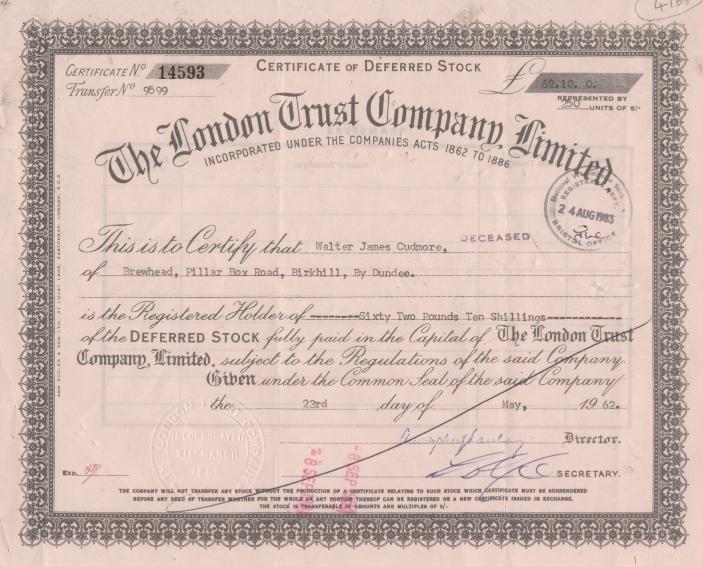 CERTIFICATE OF DEFERRED STOCK
CERTIFICATE Nº 14593
Transfer Nº 9599
£ 62.10. 0.
REPRESENTED BY
250 UNITS OF 5/-
The London Trust Company, Limited
INCORPORATED UNDER THE COMPANIES ACTS 1862 TO 1886.
24 AUG 1983
BRISTOL OFFICE
This is to Certify that Walter James Cudmore, DECEASED
of Brewhead, Pillar Box Road, Birkhill, By Dundee.
is the Registered Holder of --------Sixty Two Pounds Ten Shillings-----------
of the DEFERRED STOCK fully paid in the Capital of The London Trust
Company, Limited, subject to the Regulations of the said Company.
Given under the Common Seal of the said Company
the 23rd day of May, 1962.
THE LONDON TRUST COMPANY
INCORPORATED
21ST MARCH
Director.
SECRETARY.
EXD.
THE COMPANY WILL NOT TRANSFER ANY STOCK WITHOUT THE PRODUCTION OF A CERTIFICATE RELATING TO SUCH STOCK WHICH CERTIFICATE MUST BE SURRENDERED
BEFORE ANY DEED OF TRANSFER WHETHER FOR THE WHOLE OR ANY PORTION THEREOF CAN BE REGISTERED OR A NEW CERTIFICATE ISSUED IN EXCHANGE.
THE STOCK IS TRANSFERABLE IN AMOUNTS AND MULTIPLES OF 5/-